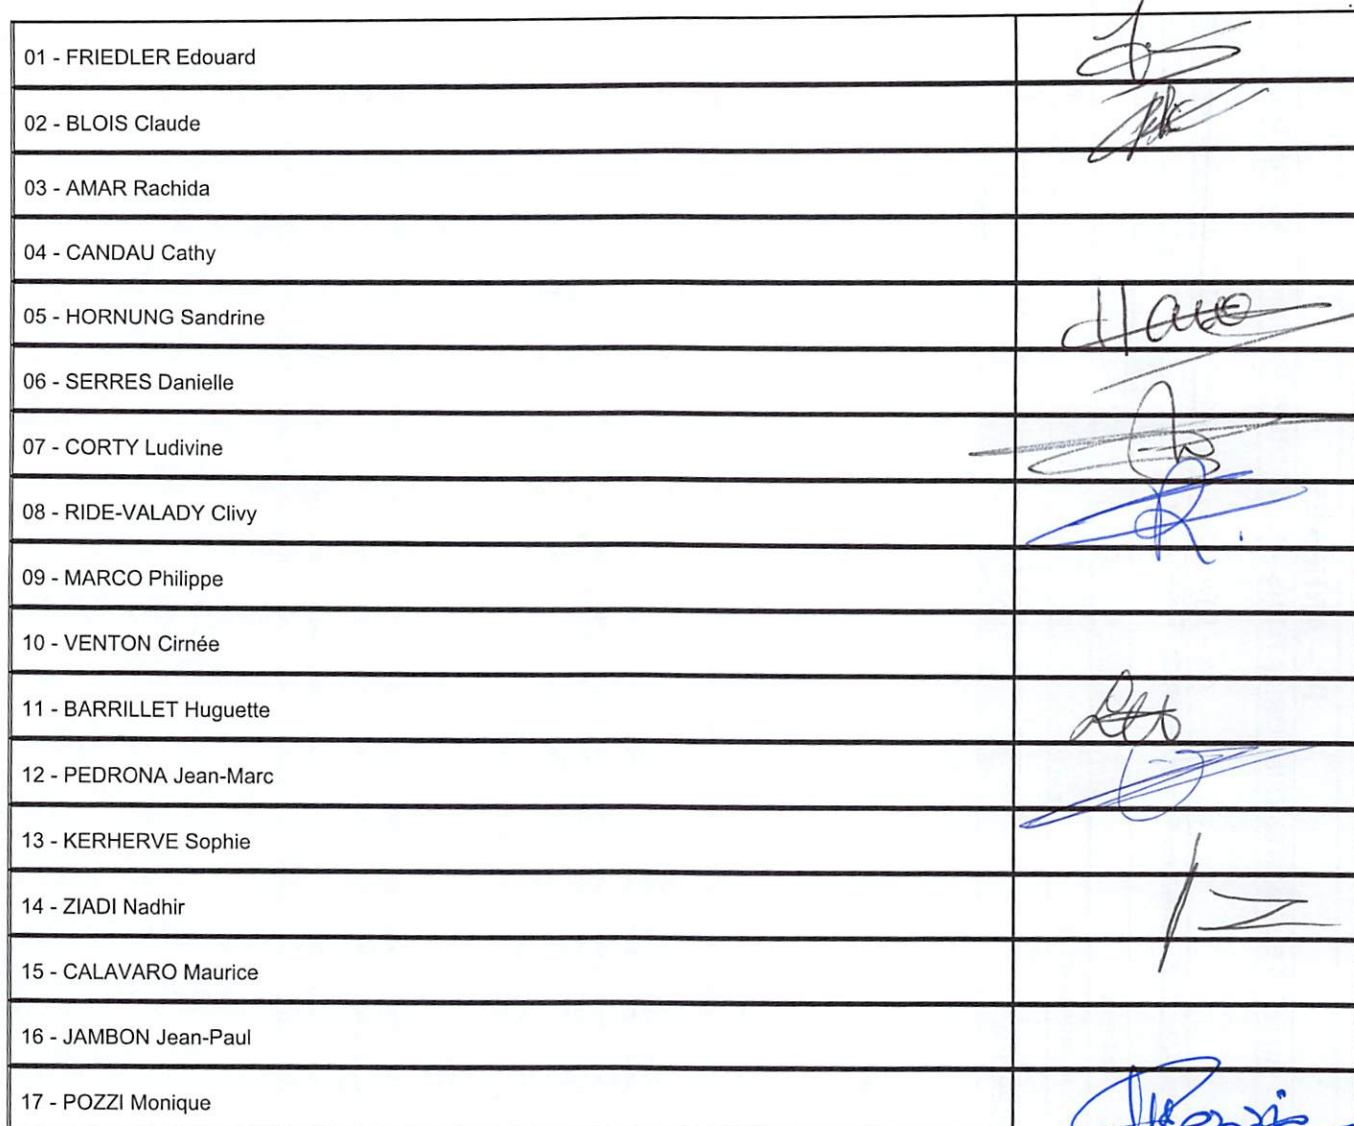 01 - FRIEDLER Edouard
02 - BLOIS Claude
03 - AMAR Rachida
04 - CANDAU Cathy
05 - HORNUNG Sandrine
06 - SERRES Danielle
07 - CORTY Ludivine
08 - RIDE-VALADY Clivy
09 - MARCO Philippe
10 - VENTON Cirnée
11 - BARRILLET Huguette
12 - PEDRONA Jean-Marc
13 - KERHERVE Sophie
14 - ZIADI Nadhir
15 - CALAVARO Maurice
16 - JAMBON Jean-Paul
17 - POZZI Monique